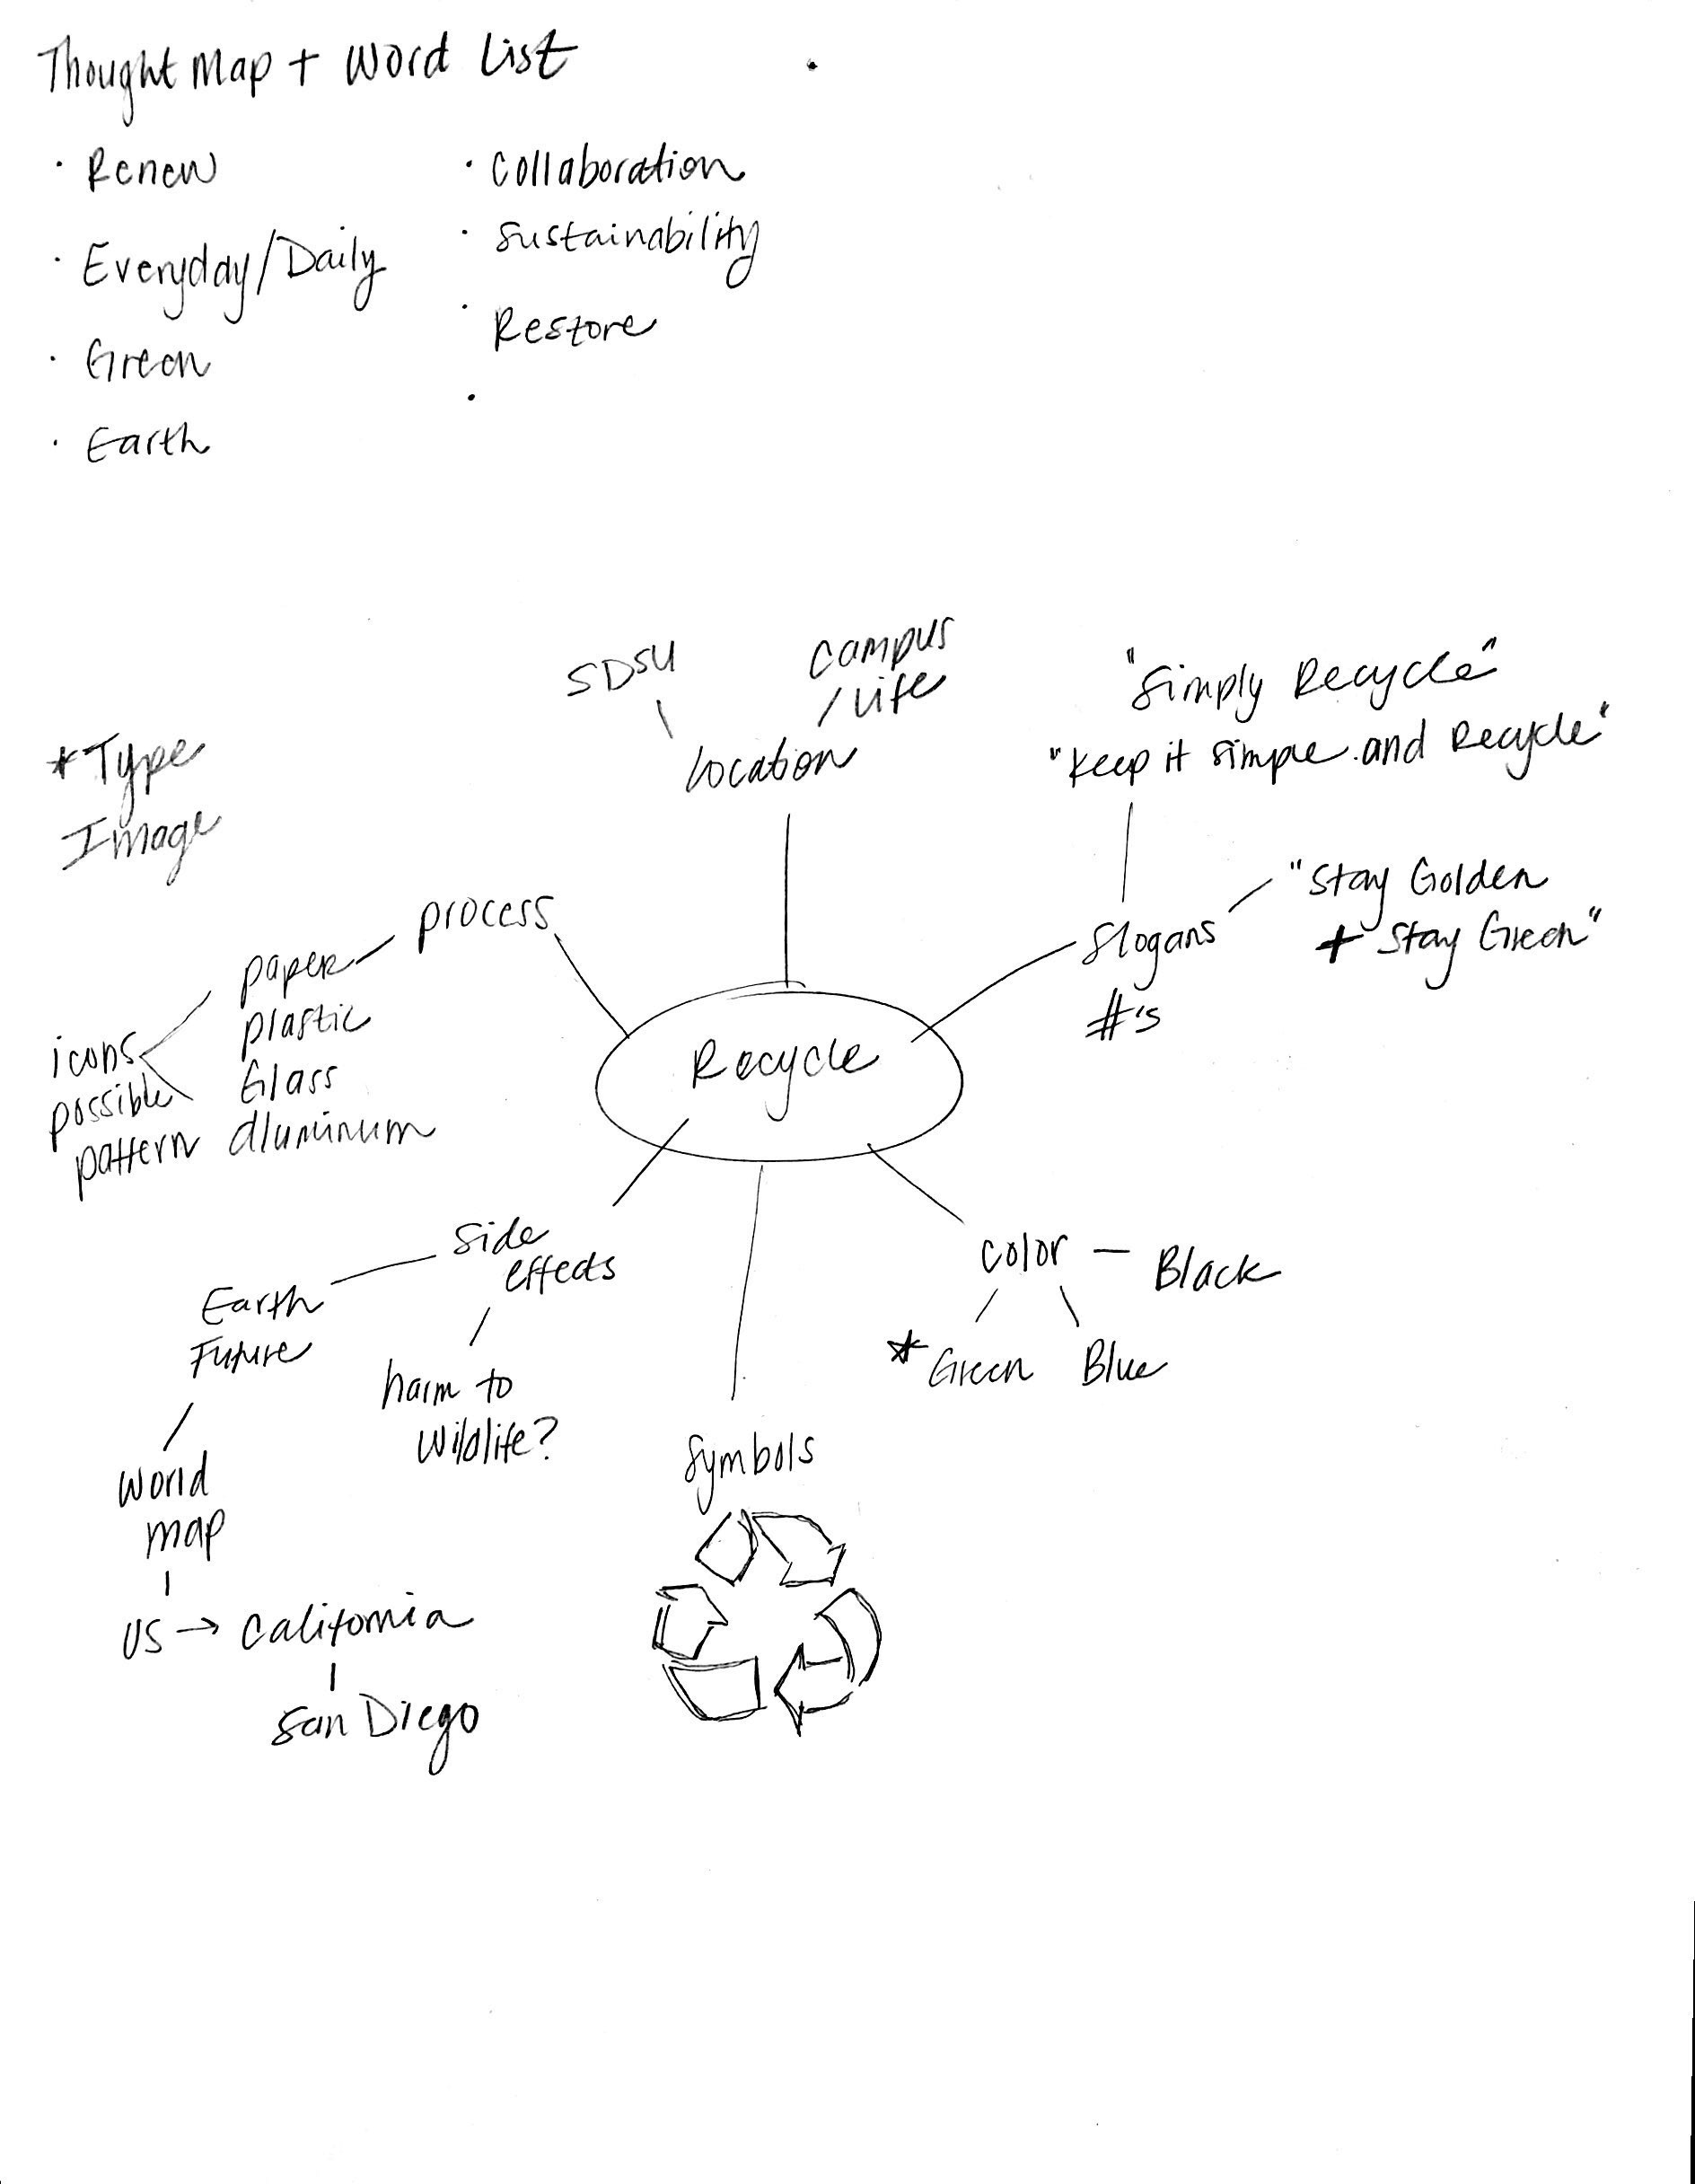 Thought Map + Word List
· Renew
· Everyday/Daily
· Green
· Earth
· Collaboration
· Sustainability
· Restore
·
SDSU
campus
life
Location
"Simply Recycle"
"Keep it simple and Recycle"
"Stay Golden
+ Stay Green"
Slogans
#'s
*Type
Image
process
paper
plastic
Glass
aluminum
icons
possible
pattern
Recycle
side
effects
Earth
Future
harm to
wildlife?
world
map
US → California
San Diego
color — Black
*Green
Blue
Symbols